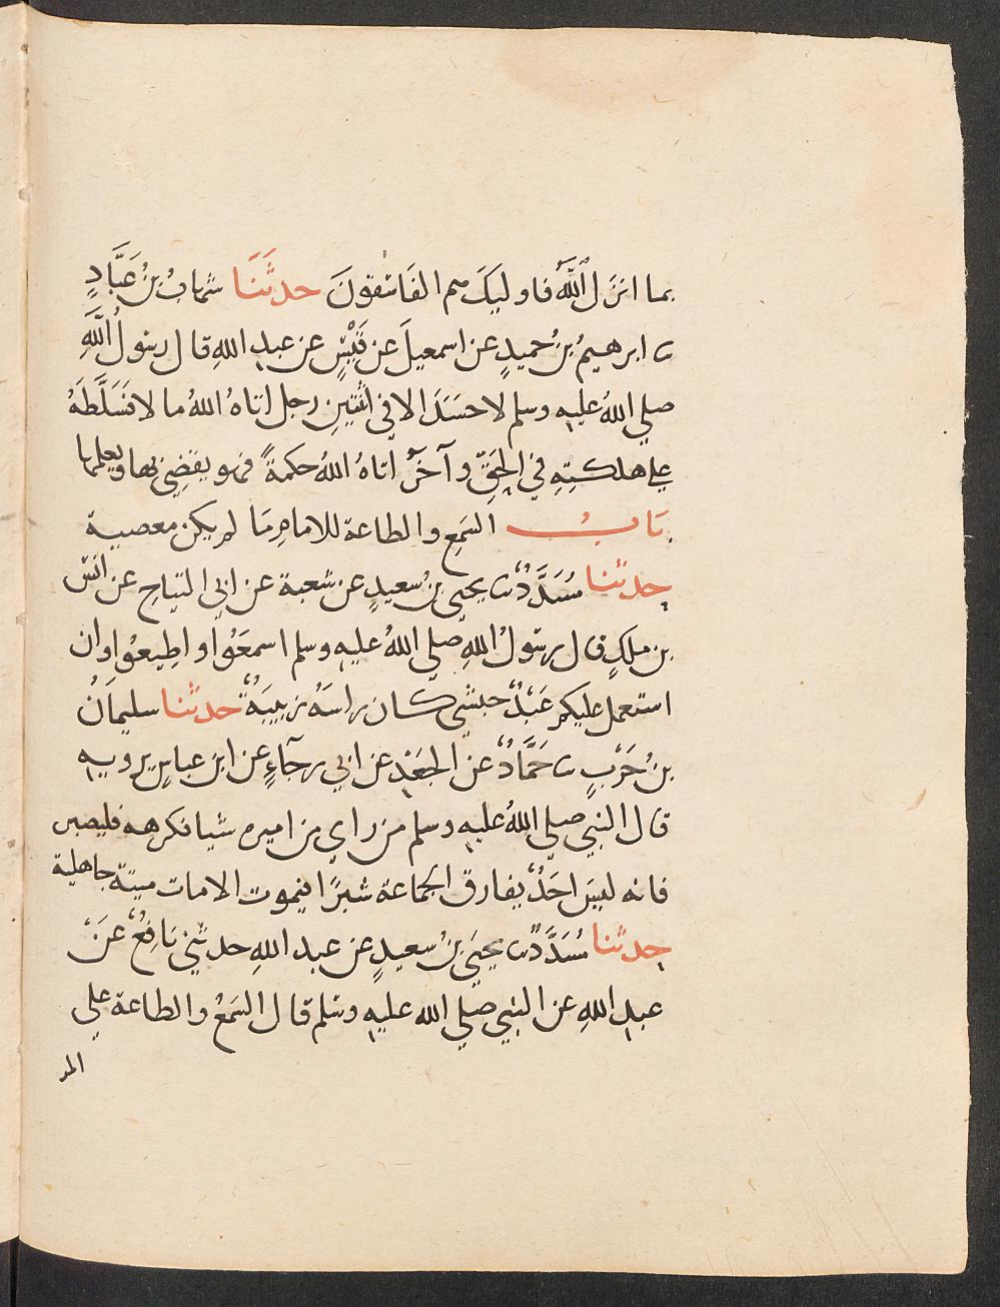 بما انزَل اللّٰهُ فاوليكَ هم الفَاسِقونَ حدثَنَا شهابُ بنُ عَبَّادٍ
ثنا ابرهيمُ بنُ حميدٍ عن اسمعيلَ عن قَيْسٍ عن عبدِ اللهِ قال رسولُ اللَّهِ
صلي اللهُ عليهِ وسلم لا حسَدَ الا في اثنتينِ رجل اتاهُ اللهُ مالا فسَلَّطَهُ
علي هلكتِهِ في الحَقِّ وآخَرُ اتاهُ اللهُ حكمةً فهو يقضِي بها ويعلمها
بَابُ السَمعِ والطاعة للامامِ مَا لم يكن معصية
حدثنا مُسَدَّدٌ ثنا يحيي بنُ سعيدٍ عن شعبة عن ابي التياحِ عن انس
بن ملكٍ قال رسولُ اللهِ صلي اللهُ عليهِ وسلم اسمعَوُا واطِيعُوا وان
استعمل عليكم عَبْدٌ حبشي كان راسَهُ زبيبَةٌ حدثنا سليمَانُ
بنُ حَرْبٍ ثنا حَمَّادٌ عن الجَعْدِ عن ابي رجَآءٍ عن ابن عباسٍ يرويهِ
قال النبي صلي اللهُ عليهِ وسلم من راي من اميره شيا فكرهه فليصبر
فانه ليسَ احَدٌ يفارق الجماعة شبرًا فيموت الا مات ميتة جاهلية
حدثنا مُسَدَّدٌ ثنا يحيَي بنُ سعيدٍ عن عبد اللهِ حدثني نَافِعٌ عَنْ
عبدِ اللهِ عن النبيِ صلي الله عليهِ وسلم قال السَمعُ والطاعة علي
المر